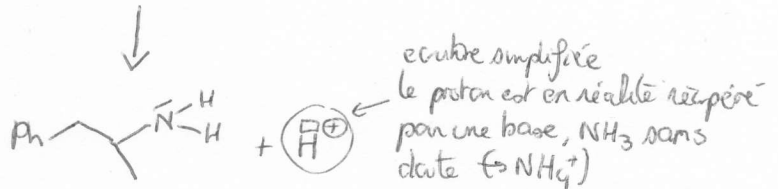 ecriture simplifiée
le proton est en réalité récupéré
par une base, NH3 sans
doute (→ NH4+)
Ph
N
H
H
+
H
+